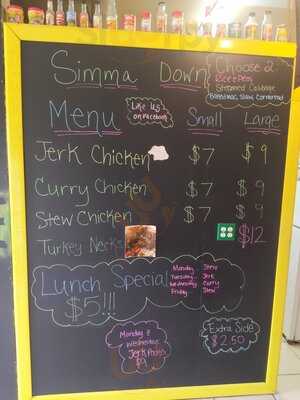 Simma Down
Choose 2
Rice & Peas
Steamed Cabbage
Baked mac, Slaw, Cornbread
Menu
Like us
on Facebook
Small Large
Jerk Chicken $7 $9
Curry Chicken $7 $9
Stew Chicken $7 $9
Turkey Necks $12
Lunch Special
$5!!!
Monday Stew
Tuesday Jerk
Wednesday Curry
Friday Stew
Monday &
Wednesday
Jerk
$9
Extra Side
$2.50